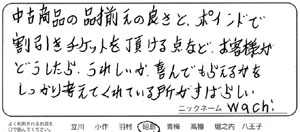 中古商品の品揃えの良さと、ポイントで
割引きチケットを頂ける点など、お客様が
どうしたら、うれしいか、喜んでもらえるかを
しっかり考えてくれている所がすばらしい
ニックネーム wachi
よく利用されるお店を
○で囲んでください。 立川 小作 羽村 昭島 青梅 高幡 堀之内 八王子